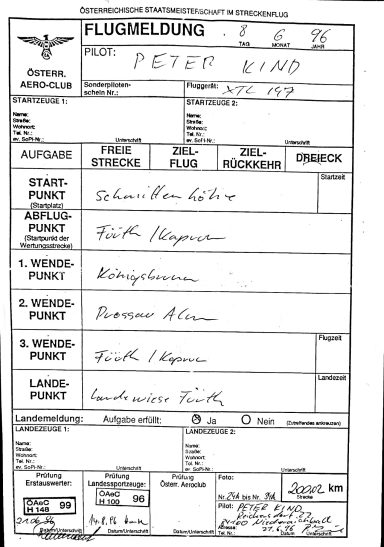 ÖSTERREICHISCHE STAATSMEISTERSCHAFT IM STRECKENFLUG
FLUGMELDUNG 8 6 96
TAG MONAT JAHR
PILOT: PETER KIND
ÖSTERR.
AERO-CLUB
Sonderpiloten-
schein Nr.:
Fluggerät: XTC 147
STARTZEUGE 1:
STARTZEUGE 2:
Name:
Straße:
Wohnort:
Tel. Nr.:
ev. SoPi-Nr.:
Unterschrift
Name:
Straße:
Wohnort:
Tel. Nr.:
ev. SoPi-Nr.:
Unterschrift
AUFGABE
FREIE
STRECKE
ZIEL-
FLUG
ZIEL-
RÜCKKEHR
DREIECK
START-
PUNKT
(Startplatz)
Schmittenhöhe
Startzeit
ABFLUG-
PUNKT
(Startpunkt der
Wertungsstrecke)
Fürth / Kaprun
1. WENDE-
PUNKT
Königsbrunn
2. WENDE-
PUNKT
Alm
3. WENDE-
PUNKT
Fürth / Kaprun
Flugzeit
LANDE-
PUNKT
Landewiese Fürth
Landezeit
Landemeldung: Aufgabe erfüllt: Ja Nein (Zutreffendes ankreuzen)
LANDEZEUGE 1:
LANDEZEUGE 2:
Name:
Straße:
Wohnort:
Tel. Nr.:
ev. SoPi-Nr.:
Unterschrift
Name:
Straße:
Wohnort:
Tel. Nr.:
ev. SoPi-Nr.:
Unterschrift
Prüfung
Erstauswerter:
ÖAeC
H 148 99
Datum/Unterschrift
Prüfung
Landessportzeuge:
ÖAeC
H 100 96
14.8.96
Datum/Unterschrift
Prüfung
Österr. Aeroclub
Datum/Unterschrift
Foto:
Nr. bis Nr.
km
Strecke
Pilot: PETER KIND
Adresse:
Datum/Unterschrift